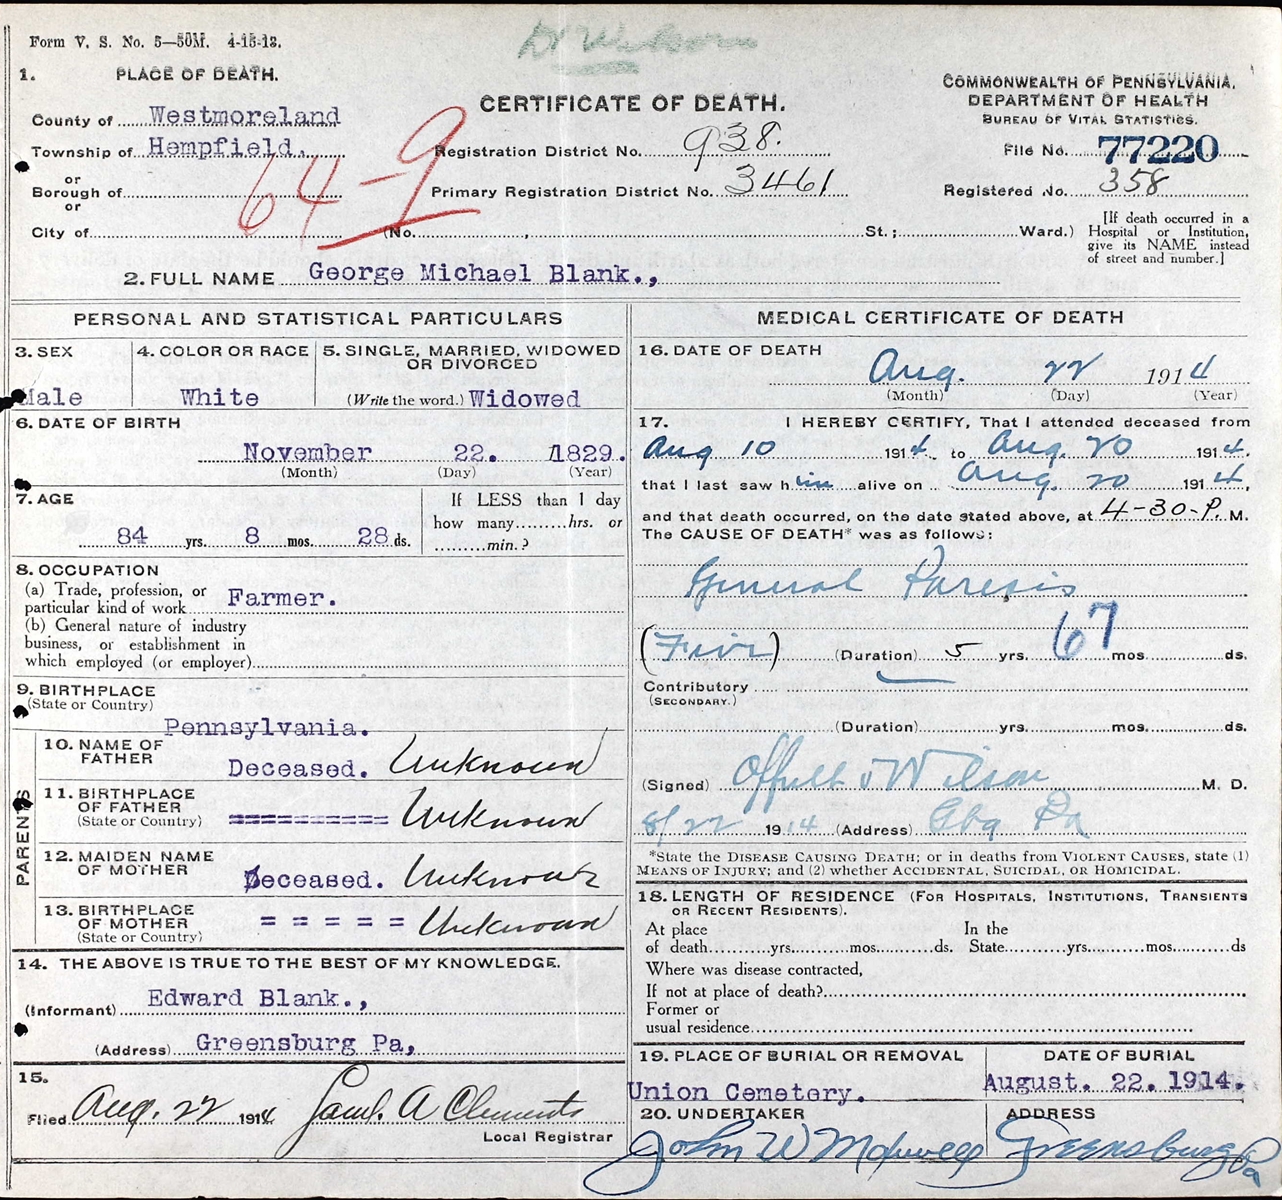 Form V. S. No. 5—50M. 4-15-13.
Dr Wilson
1. PLACE OF DEATH.
County of Westmoreland
Township of Hempfield.
or
Borough of
or
City of
64-9
CERTIFICATE OF DEATH.
Registration District No. 938.
Primary Registration District No. 3461
(No. , St.; Ward.)
COMMONWEALTH OF PENNSYLVANIA.
DEPARTMENT OF HEALTH
BUREAU OF VITAL STATISTICS.
File No. 77220
Registered No. 358
[If death occurred in a
Hospital or Institution,
give its NAME instead
of street and number.]
2. FULL NAME George Michael Blank.,
PERSONAL AND STATISTICAL PARTICULARS
3. SEX
Male
4. COLOR OR RACE
White
5. SINGLE, MARRIED, WIDOWED
OR DIVORCED
(Write the word.) Widowed
6. DATE OF BIRTH
November 22. 1829.
(Month) (Day) (Year)
7. AGE
84 yrs. 8 mos. 28 ds.
If LESS than 1 day
how many hrs. or
min.?
8. OCCUPATION
(a) Trade, profession, or
particular kind of work Farmer.
(b) General nature of industry
business, or establishment in
which employed (or employer)
9. BIRTHPLACE
(State or Country)
Pennsylvania.
PARENTS
10. NAME OF
FATHER Deceased. Unknown
11. BIRTHPLACE
OF FATHER
(State or Country) ========== Unknown
12. MAIDEN NAME
OF MOTHER Deceased. Unknown
13. BIRTHPLACE
OF MOTHER
(State or Country) = = = = = Unknown
14. THE ABOVE IS TRUE TO THE BEST OF MY KNOWLEDGE.
(Informant) Edward Blank.,
(Address) Greensburg Pa,
15.
Filed Aug. 22 1914 Saml. A Clements
Local Registrar
MEDICAL CERTIFICATE OF DEATH
16. DATE OF DEATH
Aug. 22 1914
(Month) (Day) (Year)
17. I HEREBY CERTIFY, That I attended deceased from
Aug 10 1914. to Aug. 20 1914.
that I last saw him alive on Aug. 20 1914,
and that death occurred, on the date stated above, at 4-30-P. M.
The CAUSE OF DEATH* was as follows:
General Paresis
67
(Five) (Duration) 5 yrs. mos. ds.
Contributory
(SECONDARY.)
(Duration) yrs. mos. ds.
(Signed) Wilson M. D.
8/22 1914 (Address) Gbg Pa
*State the DISEASE CAUSING DEATH; or in deaths from VIOLENT CAUSES, state (1)
MEANS OF INJURY; and (2) whether ACCIDENTAL, SUICIDAL, OR HOMICIDAL.
18. LENGTH OF RESIDENCE (FOR HOSPITALS, INSTITUTIONS, TRANSIENTS
OR RECENT RESIDENTS).
At place In the
of death yrs. mos. ds. State yrs. mos. ds
Where was disease contracted,
If not at place of death?
Former or
usual residence
19. PLACE OF BURIAL OR REMOVAL
Union Cemetery.
DATE OF BURIAL
August. 22. 1914.
20. UNDERTAKER
John W
ADDRESS
Greensburg Pa